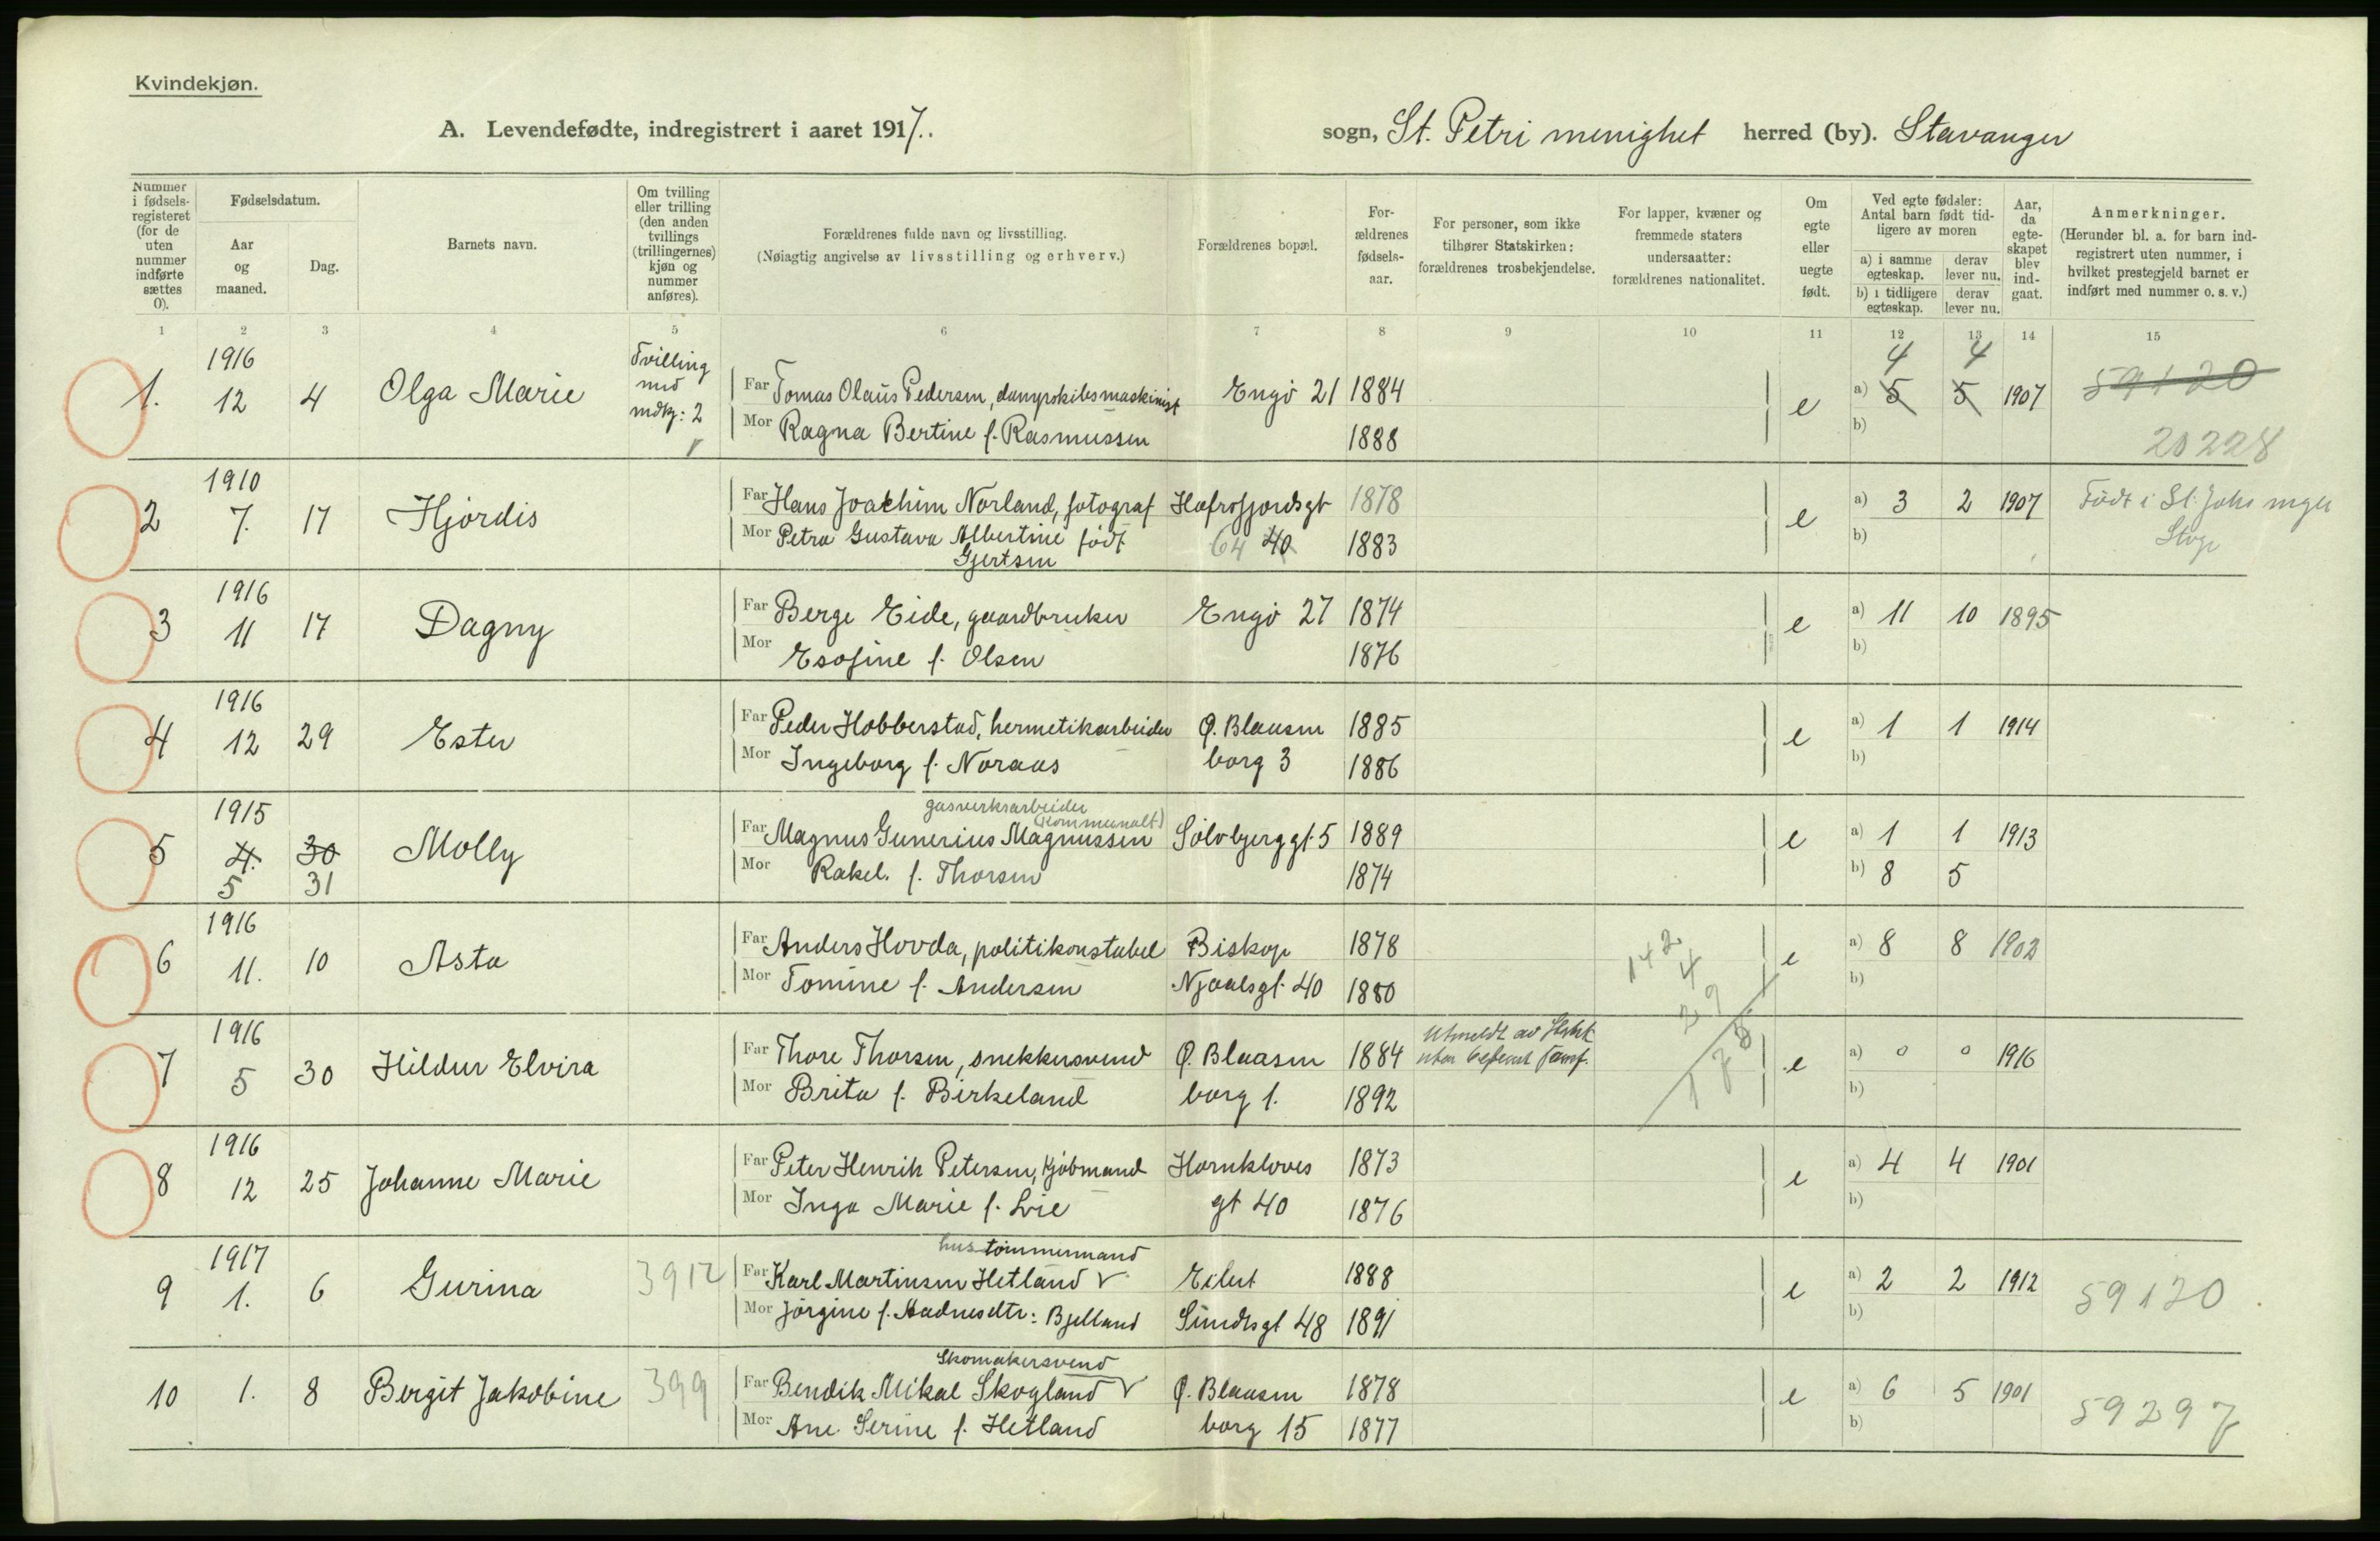 Kvindekjøn.
A. Levendefødte, indregistrert i aaret 1917.
sogn, St. Petri menighet herred (by). Stavanger
Nummer i fødsels-registeret (for de uten nummer indførte sættes 0).
Fødselsdatum.
Aar og maaned.
Dag.
Barnets navn.
Om tvilling eller trilling (den anden tvillings (trillingernes) kjøn og nummer anføres).
Forældrenes fulde navn og livsstilling.
(Nøiagtig angivelse av livsstilling og erhverv.)
Forældrenes bopæl.
For-ældrenes fødsels-aar.
For personer, som ikke tilhører Statskirken: forældrenes trosbekjendelse.
For lapper, kvæner og fremmede staters undersaatter: forældrenes nationalitet.
Om egte eller uegte født.
Ved egte fødsler: Antal barn født tid-ligere av moren
a) i samme egteskap. derav lever nu.
b) i tidligere egteskap. derav lever nu.
Aar, da egte-skapet blev ind-gaat.
Anmerkninger.
(Herunder bl. a. for barn ind-registrert uten nummer, i hvilket prestegjeld barnet er indført med nummer o. s. v.)
1 2 3 4 5 6 7 8 9 10 11 12 13 14 15
1. 1916 12 4 Olga Marie Tvilling med mdkj: 2 Far Tomas Olaus Pedersen, dampskibsmaskinist Engö 21 1884 e a) 5 5 4 4 1907 59120
Mor Ragna Bertine f. Rasmussen 1888 b) 20228
2 1910 7. 17 Hjördis Far Hans Joachim Norland, fotograf Hafrsfjordsgt 1878 e a) 3 2 1907 Födt i St. Johs mgh
Mor Petra Gustava Albertine födt Gjertsen 64 40 1883 b) Stvgr
3 1916 11 17 Dagny Far Berge Eide, gaardbruker Engö 27 1874 e a) 11 10 1895
Mor Esofine f. Olsen 1876 b)
4 1916 12 29 Ester Far Peder Hobberstad, hermetikarbeider Ø. Blaasen 1885 e a) 1 1 1914
Mor Ingeborg f. Noraas borg 3 1886 b)
gasverksarbeider (kommunalt)
5 1915 4. 30 Molly Far Magnus Gunerius Magnussen Sölvbjerggt. 5 1889 e a) 1 1 1913
5 31 Mor Rakel. f. Thorsen 1874 b) 8 5
6 1916 11. 10 Asta Far Anders Hovda, politikonstabel Biskop 1878 142 4 e a) 8 8 1902
Mor Tomine f. Andersen Njaalsgt. 40 1880 29 b)
7 1916 5 30 Hildur Elvira Far Thore Thorsen, snekkersvend Ø. Blaasen 1884 Utmeldt av Statsk uten samf. e a) 0 0 1916
Mor Brita f. Birkeland borg 1. 1892 b)
8 1916 12 25 Johanne Marie Far Peter Henrik Petersen, kjöbmand Hornkloves 1873 e a) 4 4 1901
Mor Inga Marie f. Lie gt 40 1876 b)
hus tömmermand
9 1917 1. 6 Gurina 3912 Far Karl Martinsen Hetland v Eilert 1888 e a) 2 2 1912 59120
Mor Jörgine f. Aadnesdtr: Bjelland Sundtsgt 48 1891 b)
Skomakersvend
10 1. 8 Bergit Jakobine 399 Far Bendik Mikal Skogland v Ø. Blaasen 1878 e a) 6 5 1901 59297
Mor Ane Serine f. Hetland borg 15 1877 b)